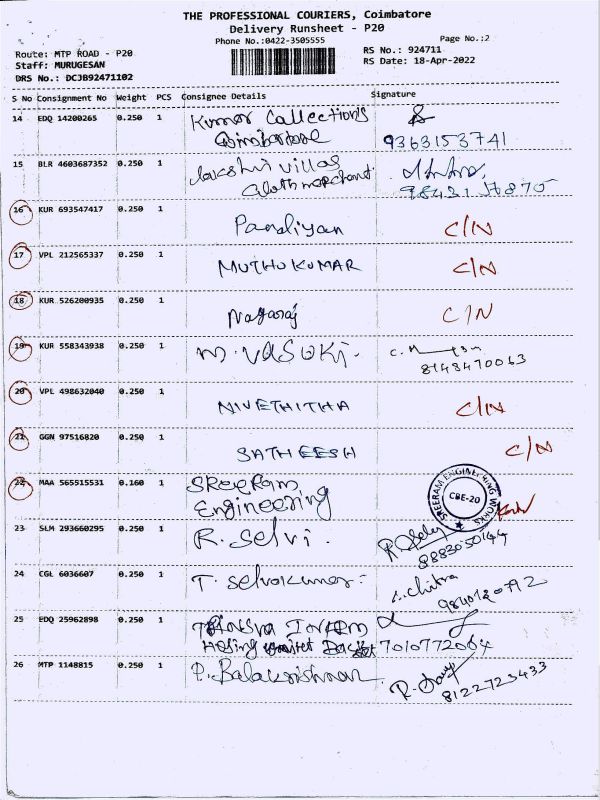 THE PROFESSIONAL COURIERS, Coimbatore
Delivery Runsheet - P20
Phone No.:0422-3505555
Page No.:2
Route: MTP ROAD - P20
RS No.: 924711
Staff: MURUGESAN
RS Date: 18-Apr-2022
DRS No.: DCJB92471102
S No Consignment No Weight PCS Consignee Details Signature
14 EDQ 14200265 0.250 1 Kumar Collections
Coimbatore 9363153741
15 BLR 4603687352 0.250 1 Lakshmi villas
Cloth merchant
16 KUR 693547417 0.250 1 Pandiyan C/N
17 VPL 212565337 0.250 1 MUTHUKUMAR C/N
18 KUR 526200935 0.250 1 Nagaraj C/N
19 KUR 558343938 0.250 1 M.VASUKI.
8143470063
20 VPL 498632040 0.250 1 NIVETHITHA C/N
21 GGN 97516820 0.250 1 SATHEESH C/N
22 MAA 565515531 0.160 1 SREERAM
Engineering
SREERAM ENGINEERING WORKS
CBE-20
23 SLM 293660295 0.250 1 R. Selvi. R. Selvi
8883050144
24 CGL 6036607 0.250 1 T. Selvakumar S. chitra
25 EDQ 25962898 0.250 1
7010772064
26 MTP 1148815 0.250 1 P. Balakrishnan
8122723433